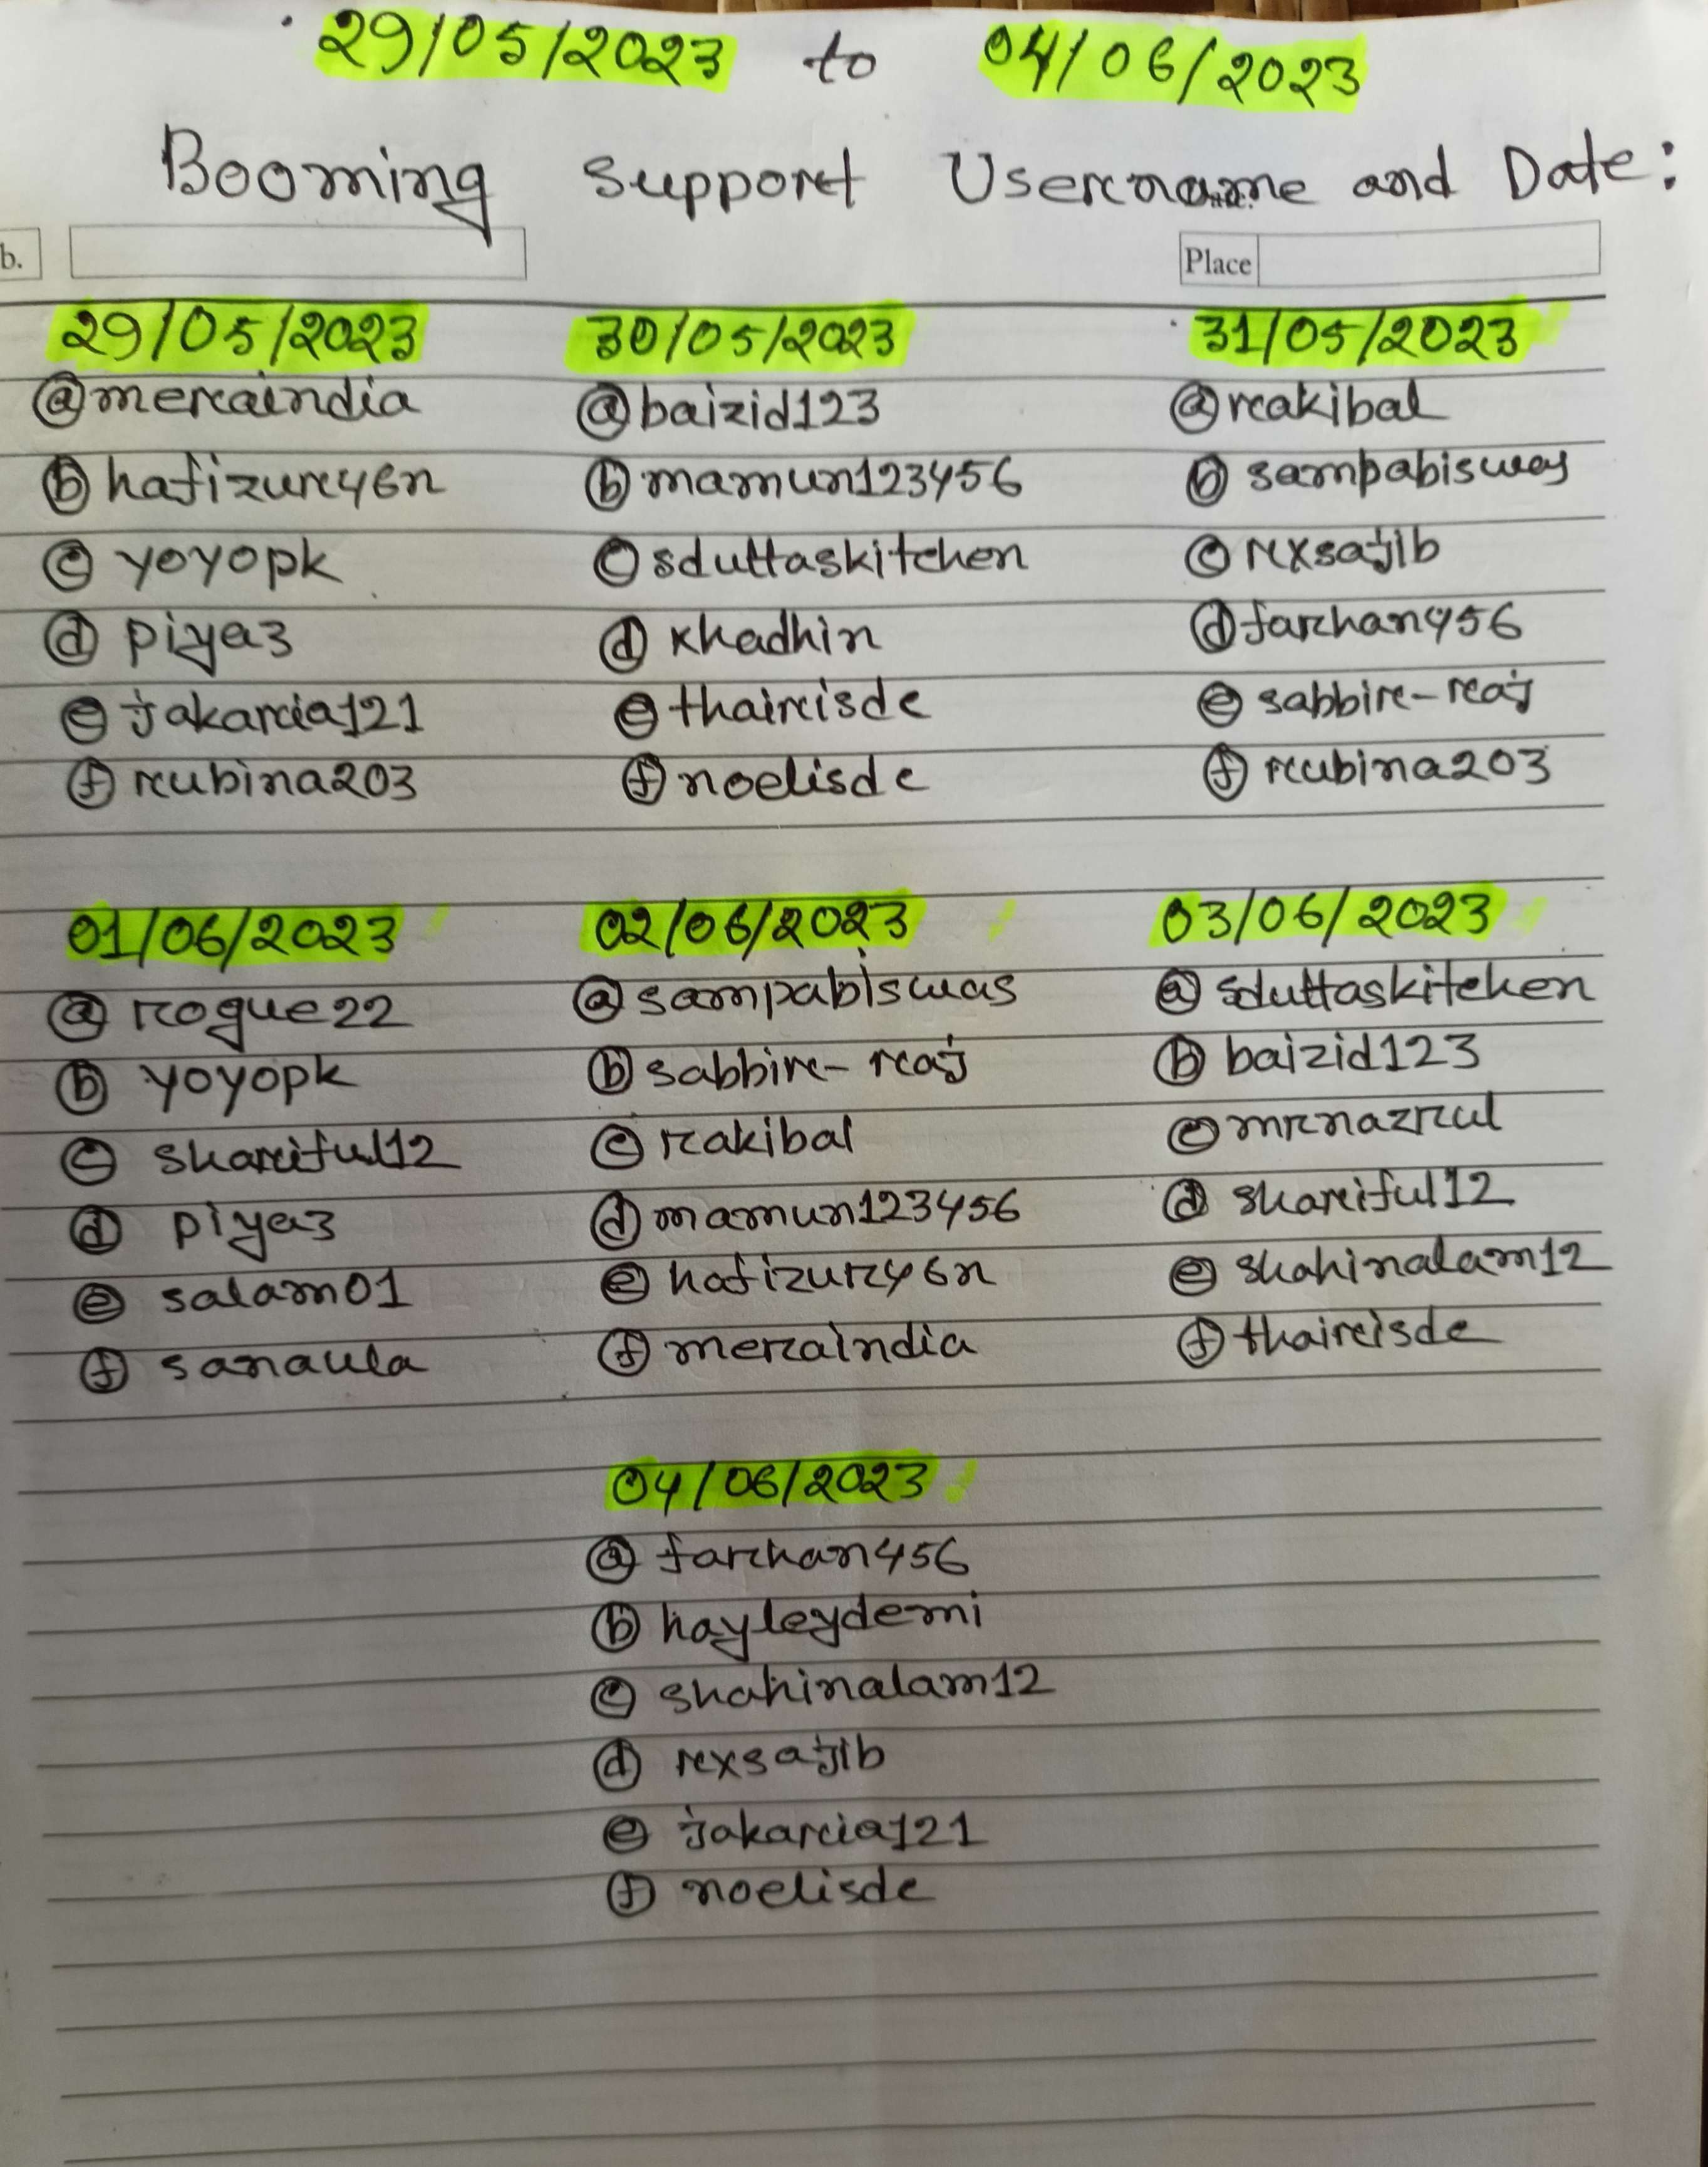 29/05/2023 to 04/06/2023
Booming Support Username and Date:
b.
Place
29/05/2023 30/05/2023 31/05/2023
ⓐ meraindia ⓐ baizid123 ⓐ rakibal
ⓑ hafizur46n ⓑ mamun123456 ⓑ sampabiswas
ⓒ yoyopk ⓒ sduttaskitchen ⓒ rxsajib
ⓓ piya3 ⓓ khadhin ⓓ farhan456
ⓔ jakaria121 ⓔ thairisde ⓔ sabbir-raj
ⓕ rubina203 ⓕ noelisde ⓕ rubina203
01/06/2023 02/06/2023 03/06/2023
ⓐ rogue22 ⓐ sampabiswas ⓐ sduttaskitchen
ⓑ yoyopk ⓑ sabbir-raj ⓑ baizid123
ⓒ shariful12 ⓒ rakibal ⓒ mrnazrul
ⓓ piya3 ⓓ mamun123456 ⓓ shariful12
ⓔ salam01 ⓔ hafizur46n ⓔ shahinalam12
ⓕ sanaula ⓕ meraindia ⓕ thairisde
04/06/2023
ⓐ farhan456
ⓑ hayleydemi
ⓒ shahinalam12
ⓓ rxsajib
ⓔ jakaria121
ⓕ noelisde